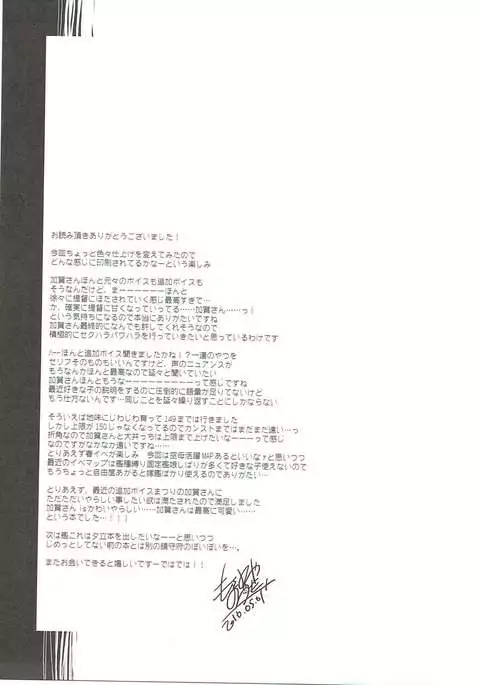 お読み頂きありがとうございました！
今回ちょっと色々仕上げを変えてみたので
どんな感じに印刷されてるかなーという楽しみ
加賀さんほんと元々のボイスも追加ボイスも
そうなんだけど、まーーーーーーほんと
徐々に提督にほだされていく感じ最高すぎて…
か、確実に提督に甘くなっていってる……加賀さん……っ！
という気持ちになるので本当にありがたいですね
加賀さん最終的になんでも許してくれそうなので
積極的にセクハラパワハラを行っていきたいと思っているわけです
ほんと追加ボイス聞きましたかね！？一連のやつを
セリフそのものもいいんですけど、声のニュアンスが
もうなんかほんと最高なので延々と聞いていたい
加賀さんほんともうなーーーーーーーーって感じですね
最近好きな子の説明をするのに圧倒的に語彙が足りてないけど
もう仕方ないんです…同じことを延々繰り返すことにしかならない
そういえば地味にじわじわ育って149までは行きました
しかし上限が150じゃなくなってるのでカンストまではまだまだ遠い…っ
折角なので加賀さんと大井っちは上限まで上げたいなーーーって感じ
なのですがなかなか遠いですね…
とりあえず春イベが楽しみ　今回は空母活躍MAPあるといいなァと思いつつ
最近のイベマップは艦種縛り固定艦娘しばりが多くて好きな子使えないので
もうちょっと自由度あがると嫁艦ばかり使えるのでありがたい…
とりあえず、最近の追加ボイスまつりの加賀さんに
ただただいやらしい事したい欲は満たされたので満足しました
加賀さんisかわいやらしい……加賀さんは最高に可愛い……
という本でした…！！！
次は艦これは夕立本を出したいなーーと思いつつ
じめっとしてない前の本とは別の鎮守府のぽいぽいを…。
またお会いできると嬉しいですーではでは！！
2016.05.01